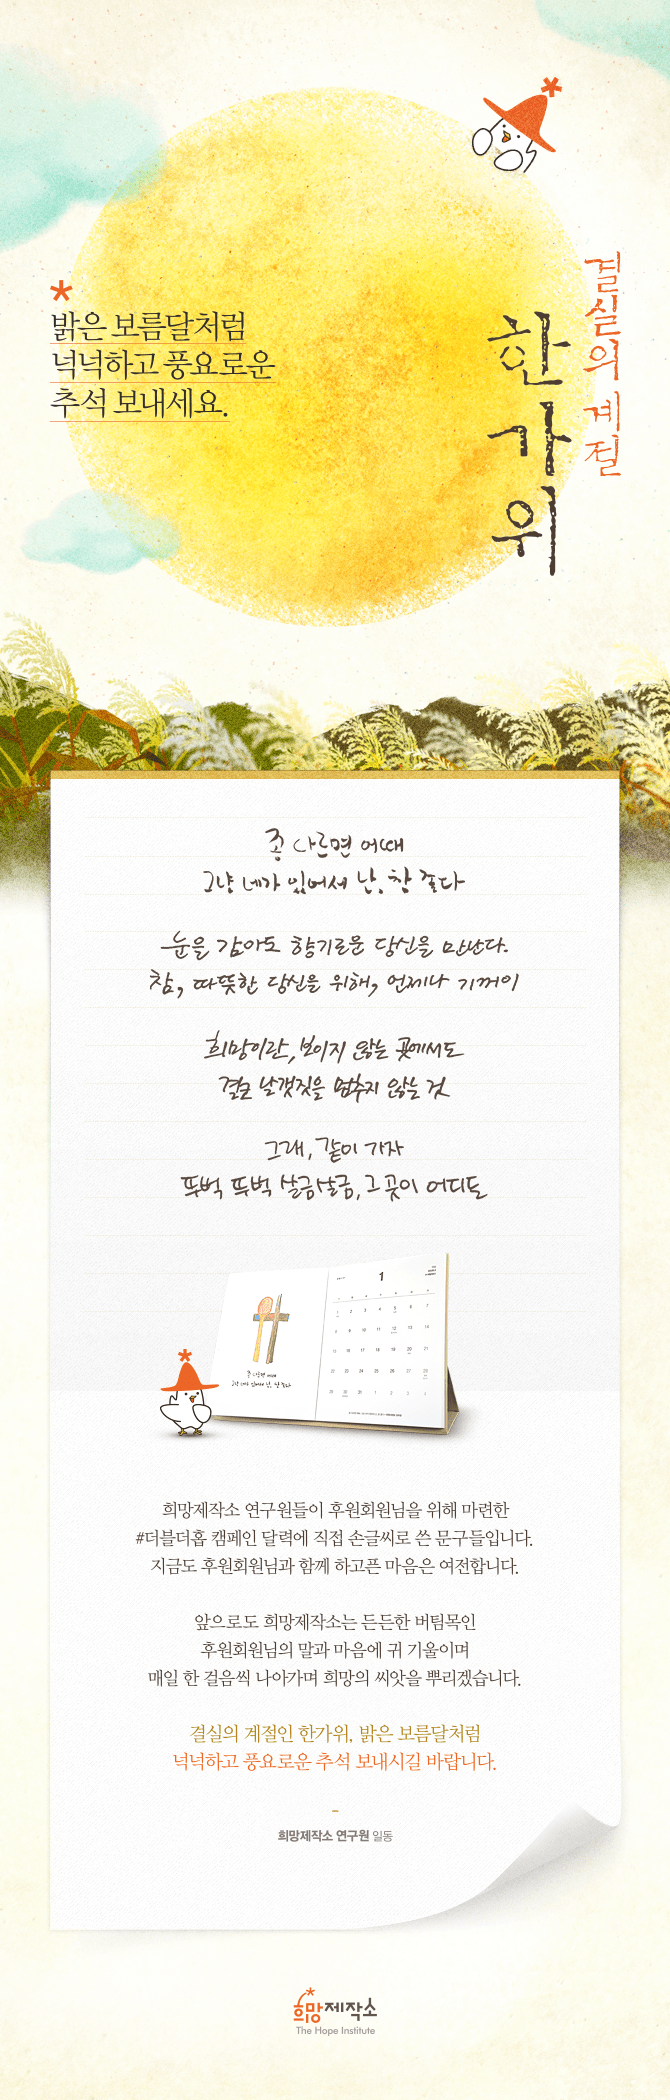 밝은 보름달처럼
넉넉하고 풍요로운
추석 보내세요.
결실의 계절
한가위
좀 다르면 어때
그냥 네가 있어서 난, 참 좋다
눈을 감아도 향기로운 당신을 만난다.
참, 따뜻한 당신을 위해, 언제나 기꺼이
희망이란, 보이지 않는 곳에서도
결코 날갯짓을 멈추지 않는 것
그래, 같이 가자
뚜벅 뚜벅 살금살금, 그 곳이 어디든
1
1 2 3 4 5 6 7
8 9 10 11 12 13 14
15 16 17 18 19 20 21
22 23 24 25 26 27 28
29 30 31 1 2 3 4
좀 다르면 어때
그냥 네가 있어서 난, 참 좋다
희망제작소 연구원들이 후원회원님을 위해 마련한
#더블더홉 캠페인 달력에 직접 손글씨로 쓴 문구들입니다.
지금도 후원회원님과 함께 하고픈 마음은 여전합니다.
앞으로도 희망제작소는 든든한 버팀목인
후원회원님의 말과 마음에 귀 기울이며
매일 한 걸음씩 나아가며 희망의 씨앗을 뿌리겠습니다.
결실의 계절인 한가위, 밝은 보름달처럼
넉넉하고 풍요로운 추석 보내시길 바랍니다.
희망제작소 연구원 일동
희망제작소
The Hope Institute